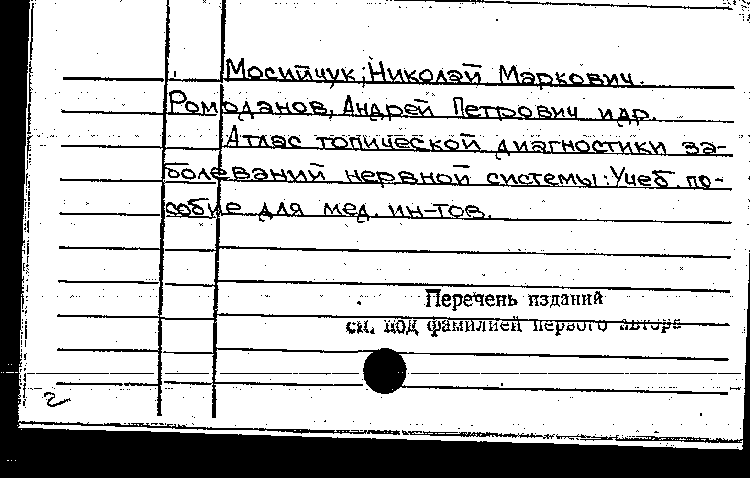 Мосийчук, Николай Маркович.
Ромоданов, Андрей Петрович и др.
Атлас топической диагностики за-
болеваний нервной системы: Учеб. по-
собие для мед. ин-тов.
Перечень изданий
см. под фамилией первого автора
г